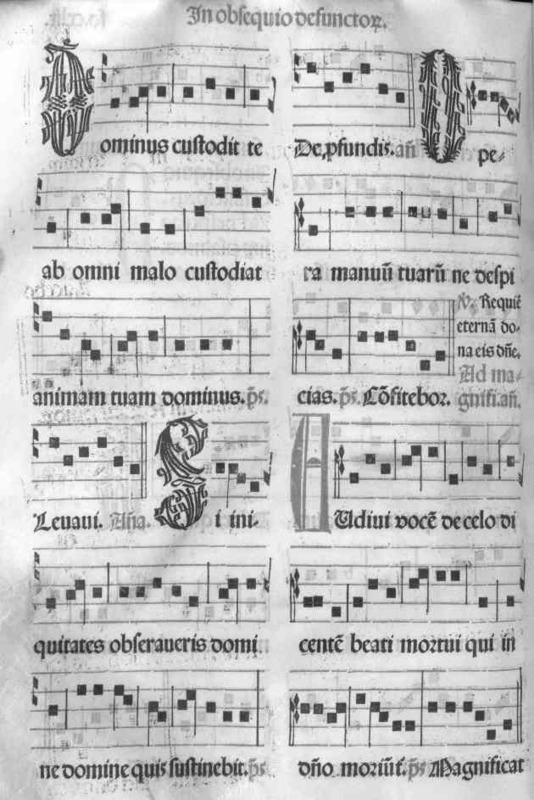 In obsequio defunctoꝝ.
Dominus custodit te
ab omni malo custodiat
animam tuam dominus. p̄s.
Levavi. Aña.
Si ini-
quitates observaveris domi
ne domine quis sustinebit. p̄s
De ꝓfundis. añ
Ope-
ra manuū tuarū ne despi
cias. p̄s. Cōfitebor.
℣. Requiē
eternā do-
na eis dñe.
Ad ma-
gnifi. añ.
AUdivi vocē de celo di
centē beati mortui qui in
dño moriūt. p̄s Magnificat